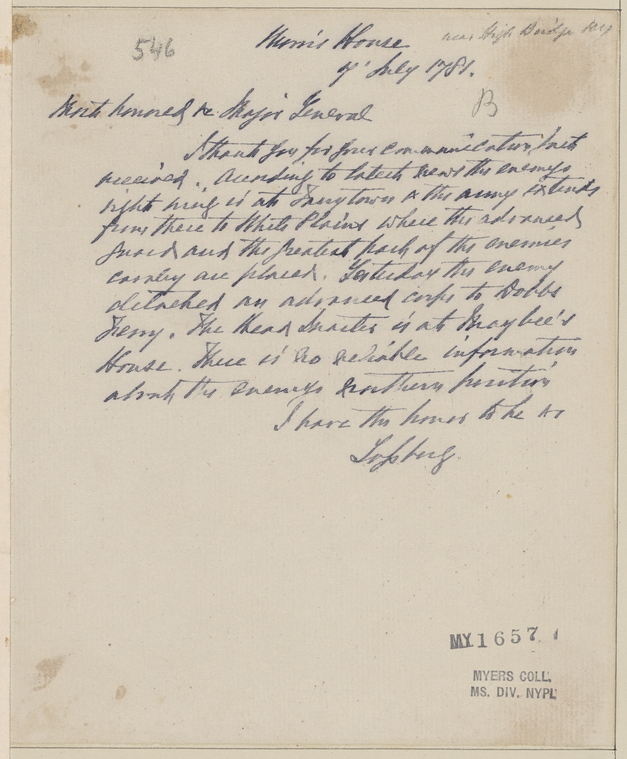 546
Morris House near High Bridge
7' July 1781.
B
Most honored &c Major General
I thank you for your communication just
received. According to latest news the enemys
right wing is at Tarrytown & the army extends
from there to White Plains where the advanced
guard and the greatest part of the enemies
cavalry are placed. Yesterday the enemy
detached an advanced corps to Dobbs
Ferry. The Head Quarter is at Maybee's
House. There is no reliable information
about the enemys northern position
I have the honor to be &c
Lossberg.
MY 1657
MYERS COLL.
MS. DIV. NYPL